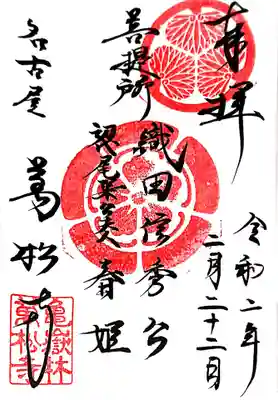 奉拝
令和二年
二月二十二日
織田信秀公
菩提所
春姫
名古屋
萬松寺
亀嶽林
萬松寺